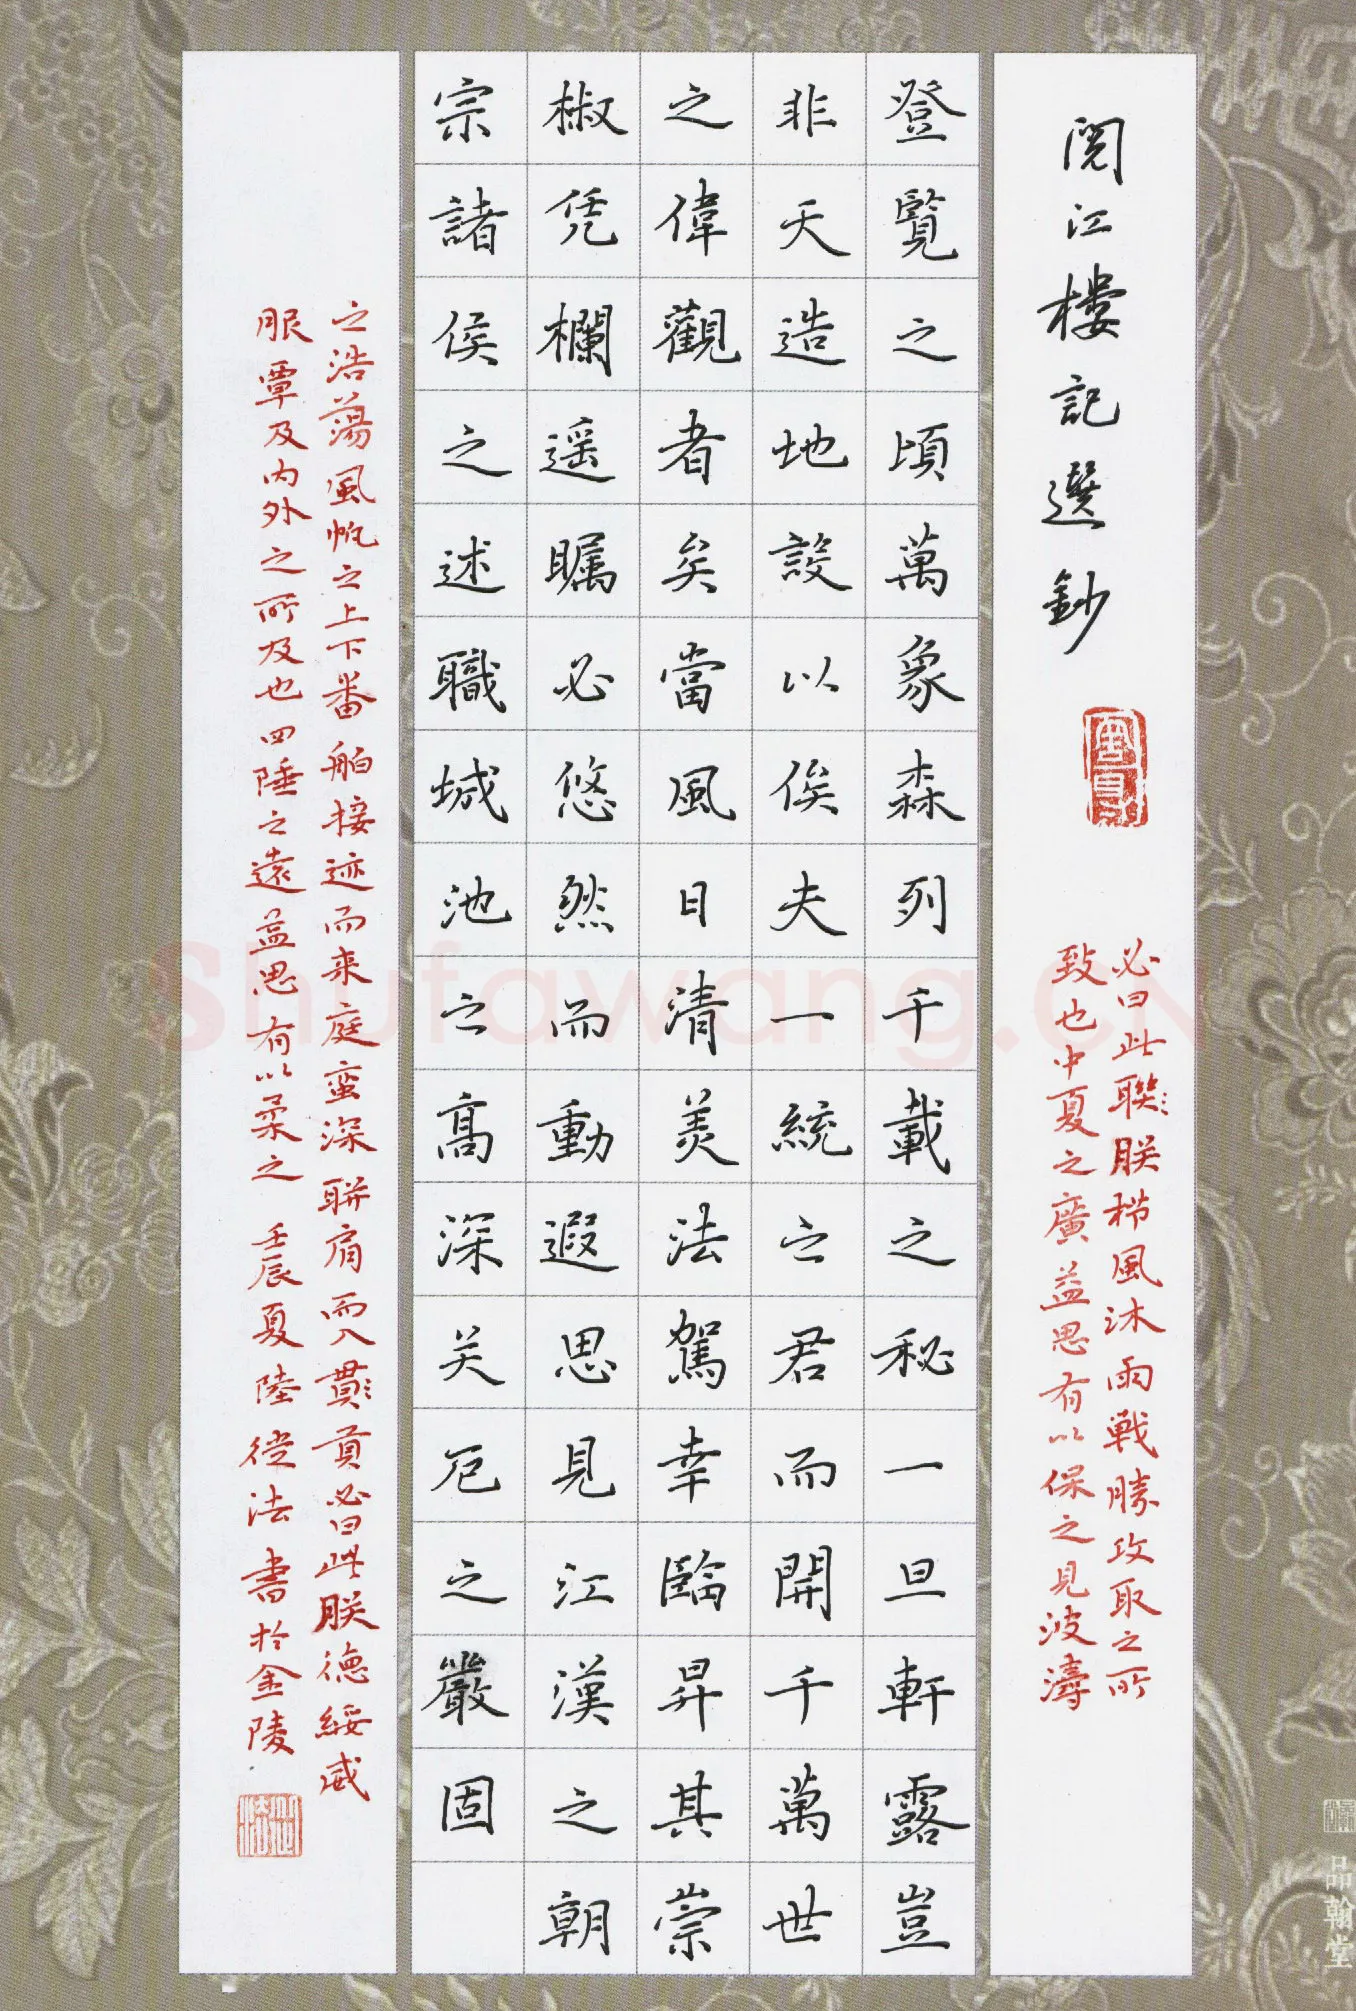 閱江樓記選鈔
必曰此聯朕栉風沐雨戦勝攻取之所
致也中夏之廣益思有以保之見波濤
登覽之頃萬象森列千載之秘一旦軒露豈
非天造地設以俟夫一統之君而開千萬世
之偉觀者矣當風日清美法駕幸臨昇其崇
椒凭欄遥矚必悠然而動遐思見江漢之朝
宗諸侯之述職城池之高深关厄之嚴固
之浩蕩風帆之上下番舶接迹而来庭蛮深聯肩而入貫貢必曰此朕德綏威
服覃及内外之所及也四陲之遠益思有以柔之 壬辰夏陸從法書於金陵
品翰堂
Shufawang.CN